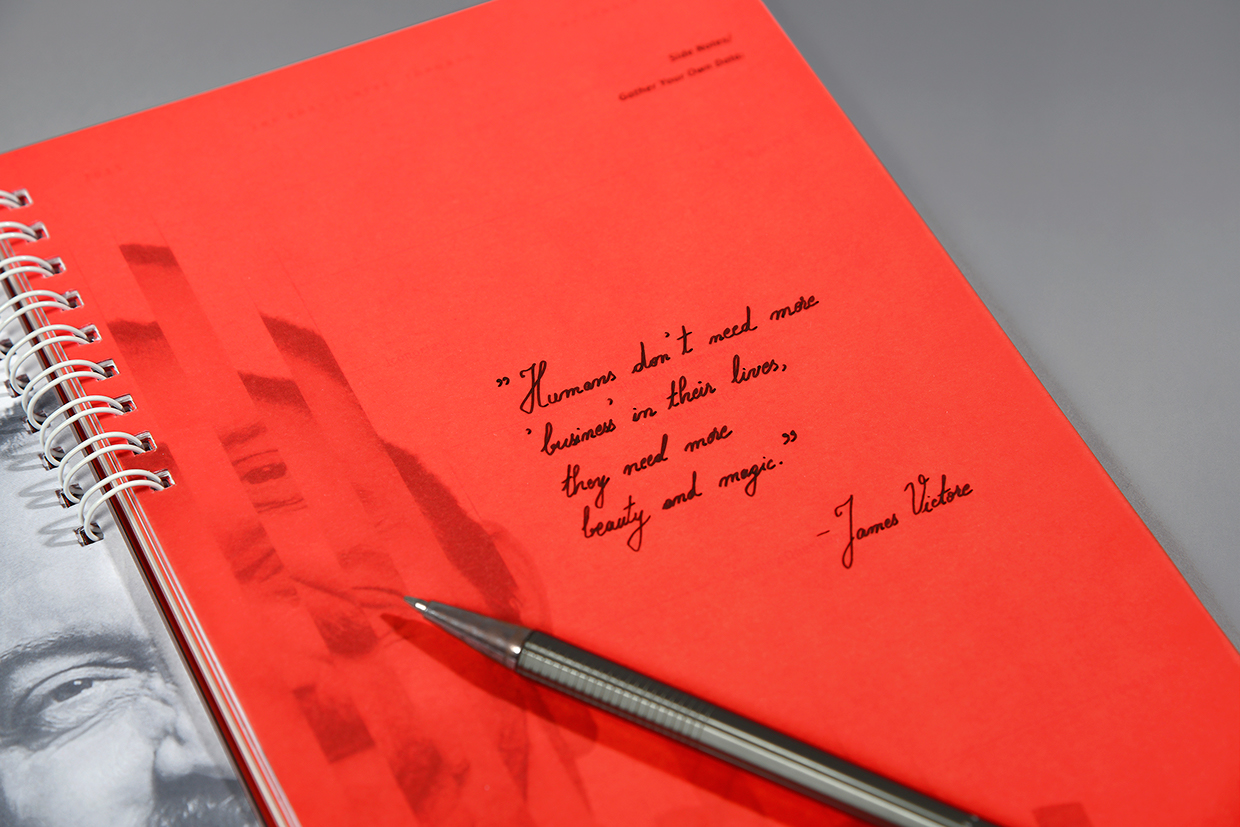 Side Notes/
Gather Your Own Data.
”Humans don't need more
'business' in their lives,
they need more
beauty and magic.”
- James Victore